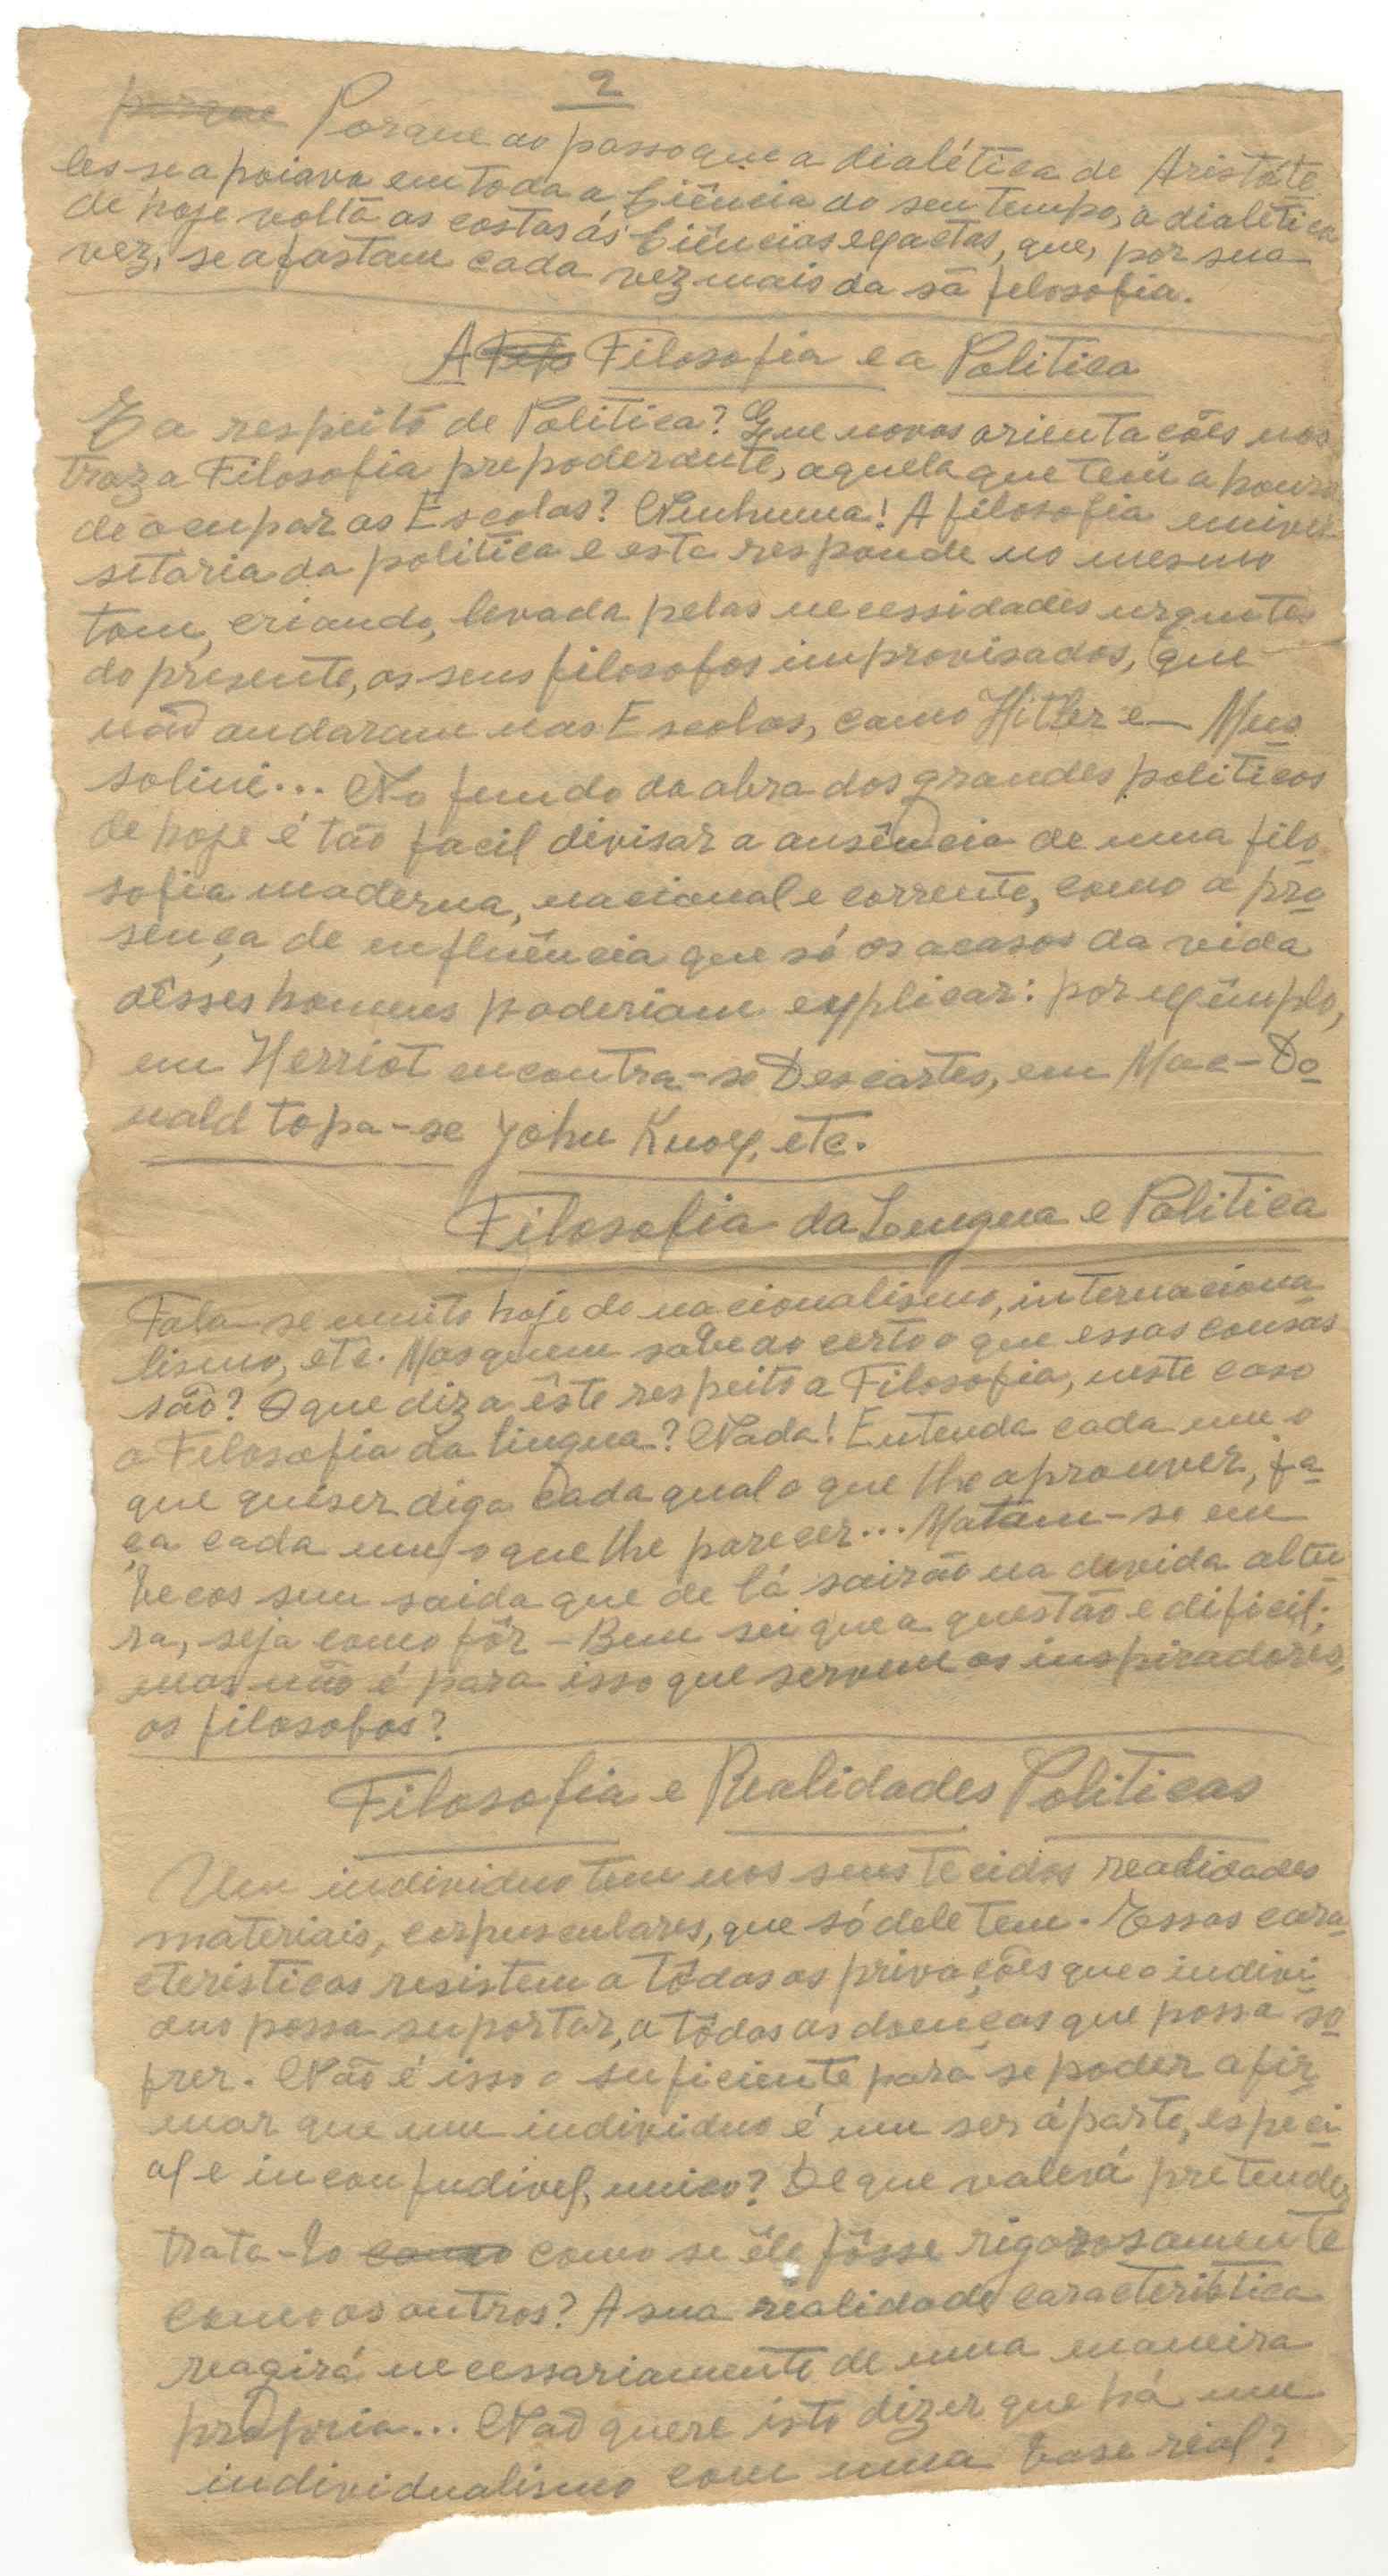 2
porque Porque ao passo que a dialética de Aristóte
les se apoiava em toda a Ciência do seu tempo, a dialetica
de hoje volta as costas ás Ciências exactas, que, por sua
vez, se afastam cada vez mais da sã filosofia.
A Filosofia e a Politica
E a respeito de Politica? Que novas orientacões nos
traz a Filosofia prepoderante, aquela que tem a honra
de ocupar as Escolas? Nenhuma! A filosofia univer-
sitaria da politica e esta responde no mesmo
tom, criando, levada pelas necessidades urgentes
do presente, os seus filosofos improvisados, que
não andaram nas Escolas, como Hitler e Mus
solini... No fundo da obra dos grandes politicos
de hoje é tão facil divisar a ausência de uma filo
sofia moderna, nacional e corrente, como a pre
sença de influência que só os acasos da vida
dêsses homens poderiam explicar: por exêmplo,
em Herriot encontra-se Descartes, em Mac-Do
nald topa-se John Knox, etc.
Filosofia da Lingua e Politica
Fala-se muito hoje do nacionalismo, internaciona
lismo, etc. Mas quem sabe ao certo o que essas cousas
são? O que diz a êste respeito a Filosofia, neste caso
a Filosofia da lingua? Nada! Entenda cada um o
que quiser diga cada qual o que lhe aprouver, fa
ça cada um o que lhe parecer... Matam-se em
becos sem saida que de lá sairão na devida altu
ra, seja como fôr - Bem sei que a questão e dificil;
mas não é para isso que servem os inspiradores,
os filosofos?
Filosofia e Realidades Politicas
Um individuo tem nos seus tecidos realidades
materiais, corpusculares, que só dele tem. Essas cara
cteristicas resistem a tôdas as privações que o indivi
duo possa suportar, a tôdas as doenças que possa so
frer. Não é isso o suficiente para se poder afir
mar que um individuo é um ser áparte, especi
al e inconfudivel, unico? De que valerá pretender
trata-lo como como se êle fôsse rigorosamente
como os outros? A sua realidade caracteristica
reagirá necessariamente de uma maneira
propria... Não quere isto dizer que há um
individualismo com uma base rial?